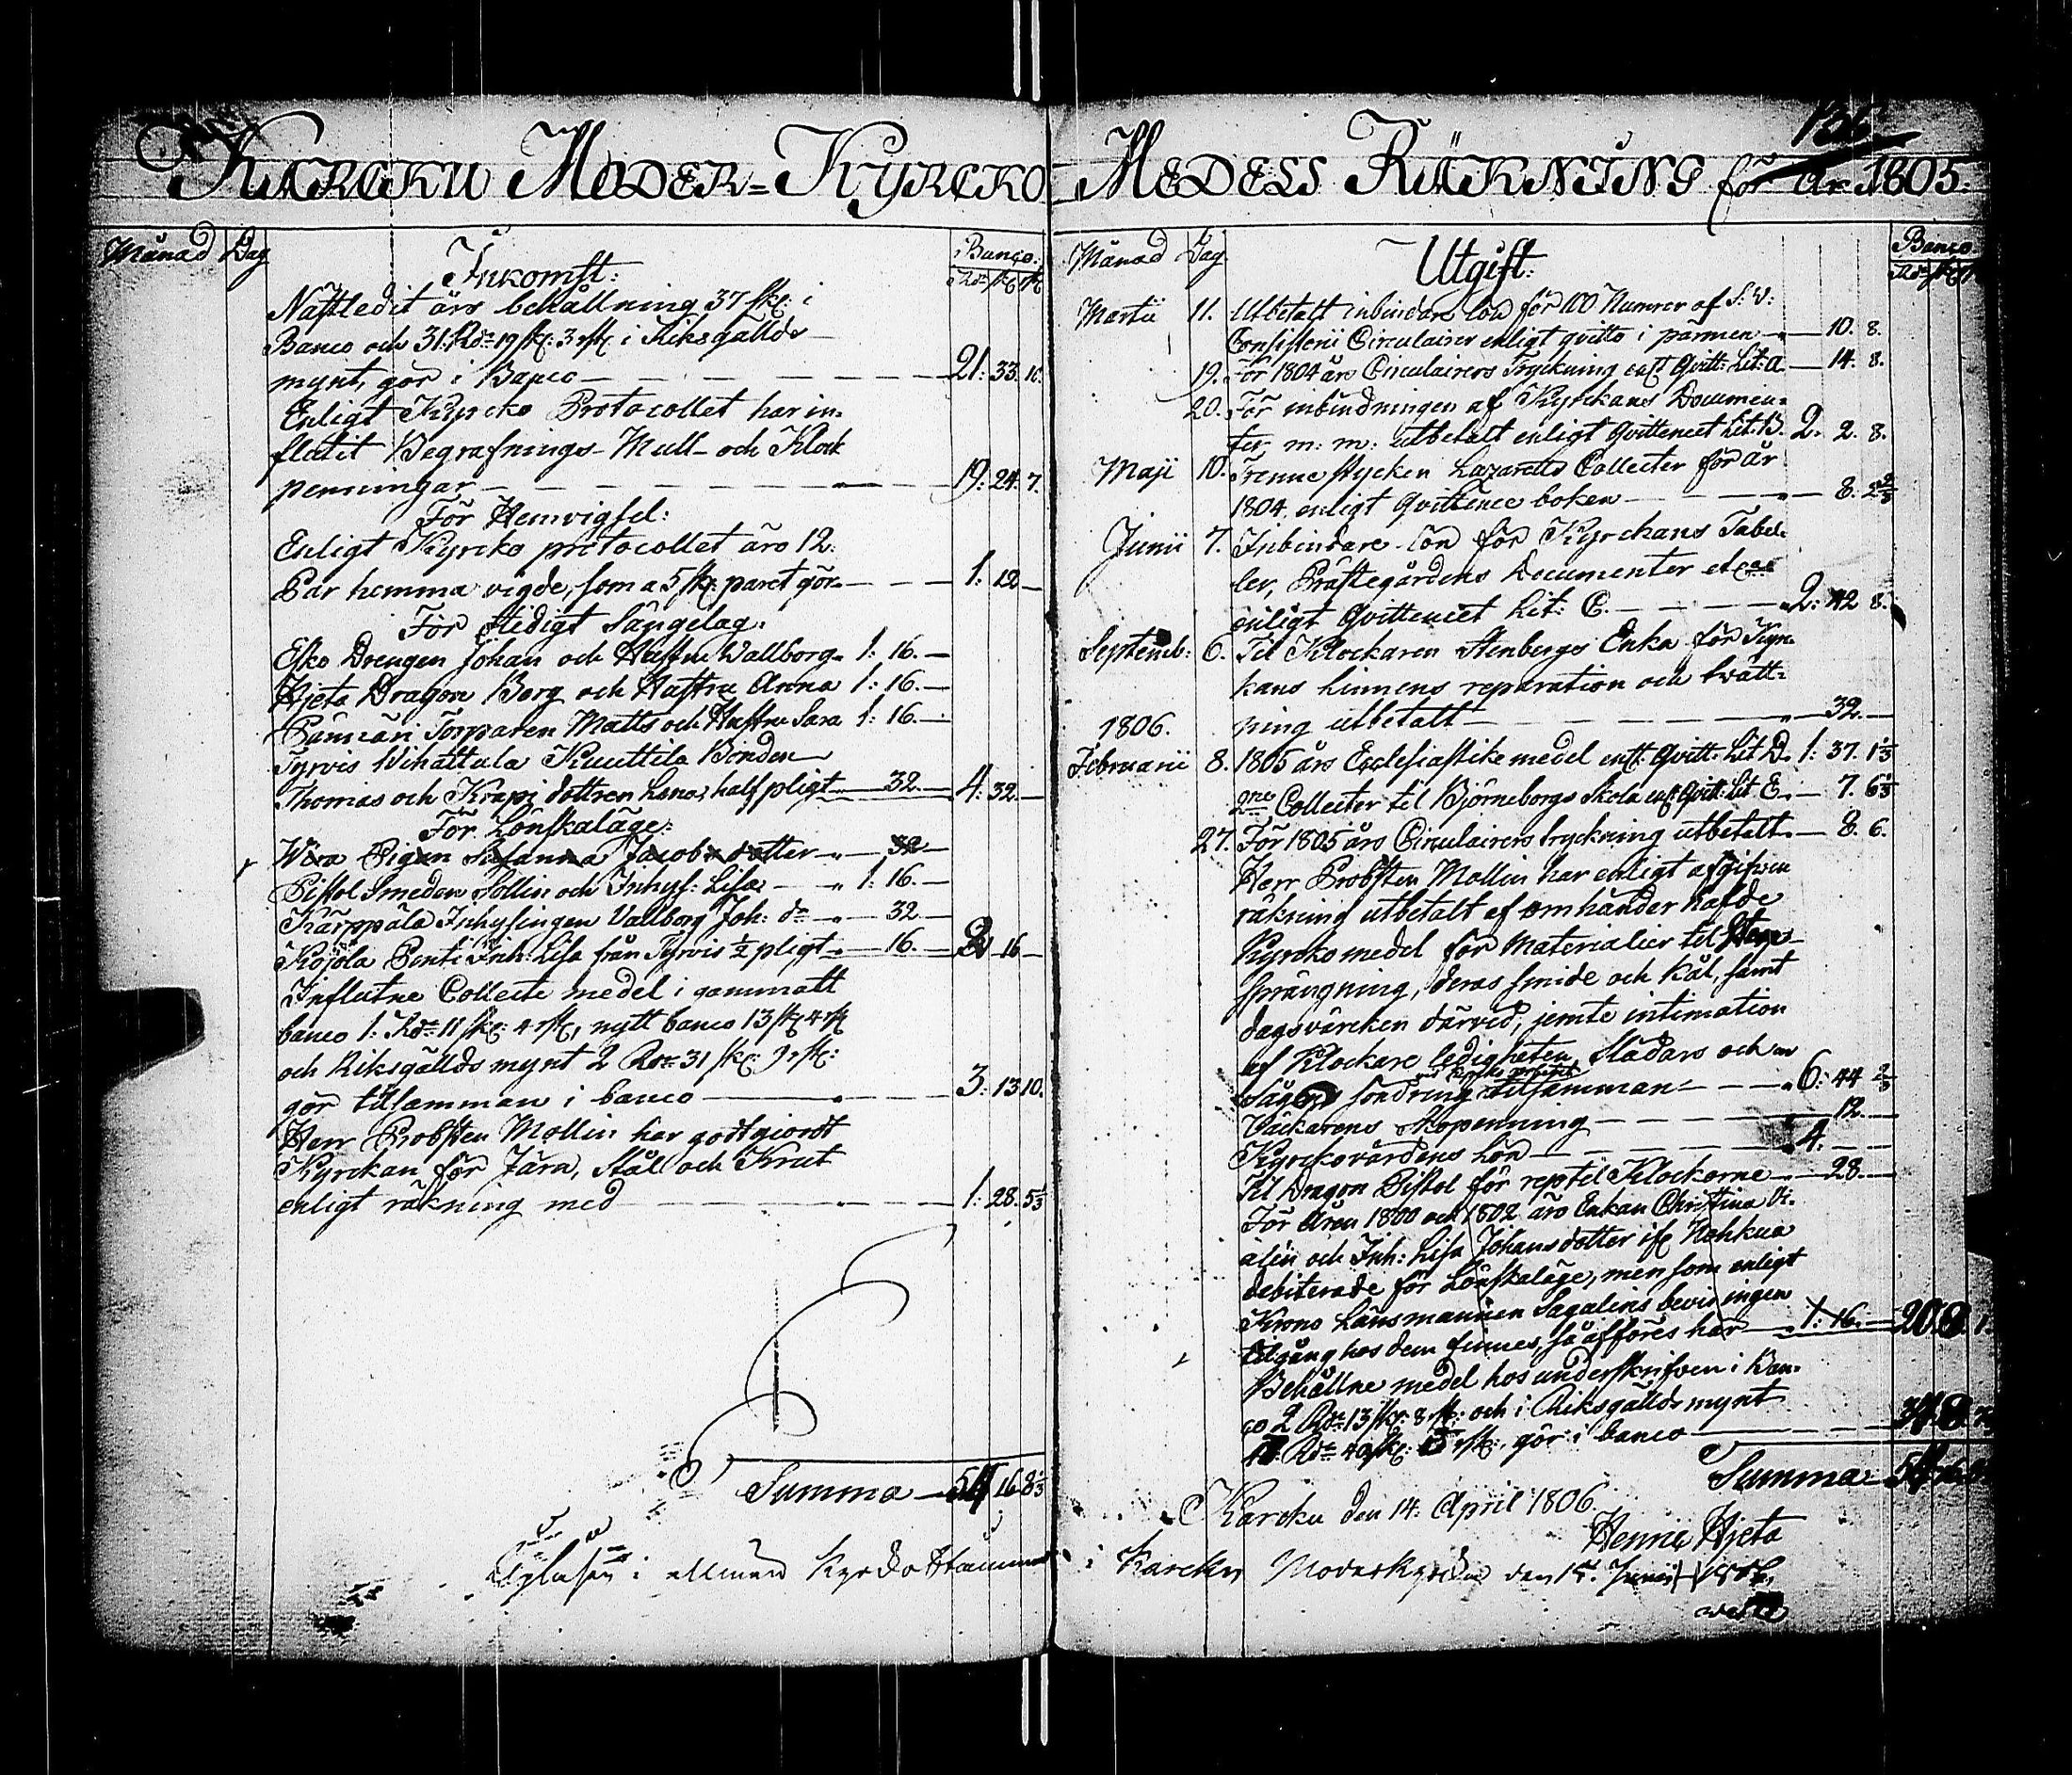 Karcku Moder=Kyrcko Medels Räkning för År 1805.
Månad Dag Inkomst: Banco.
Rdr sk rst
Nästledit års behållning 37 sk: i
Banco och 31. Rdr 19 sk: 3 rst i Riksgällds
mynt, gör i Banco 21: 33. 10.
Enligt Kyrcko Protocollet har in-
flutit Begrafnings- Mull- och Klock
penningar 19: 24. 7.
För Hemvigsel:
Enligt Kyrcko protocollet äro 12.
Par hemma vigde, som a 5 sk: paret gör 1: 12
För otidigt Sängelag:
Esko Drengen Johan och Hustru Wallborg 1: 16.
Hjeta Dragon Borg och Hustru Anna 1: 16.
Torparen Matts och Hustru Sara 1: 16.
Tyrvis Wihattula Kuuttila Bonden
Thomas och Krapi dottren Lena half pligt 32. 4: 32.
För Lönskaläge:
Wära Pigan Susanna Jacobs dotter 32
Pistol Smeden Sollin och Inhys: Lisa 1: 16.
Kärppälä Inhysingen Vallborg Joh: dr 32
Kojola Penti Inh: Lisa från Tyrvis ½ pligt 16. 2 16
Influtne Collecte medel i gammalt
banco 1: Rdr 11 sk: 4 rst, nytt banco 13 sk 4 rst
och Riksgällds mynt 2 Rdr 31 sk: 9 rst:
gör tilsamman i banco 3: 13 10.
Herr Probsten Mollin har godtgiordt
Kyrckan för Järn, Stål och Krut
enligt räkning med 1: 28. 5⅓
Summa 51 16 8⅓
i allmän Kyrcko Stämma
Månad Dag Utgift: Banco.
Martii 11. Utbetalt inbindare lön för 100 Numrer af S: V:
Consistorii Circulairer enligt qvitto i pärmen 10. 8.
19. För 1804 års Circulairers Tryckning enl: Qvitt: Lit: A. 14. 8.
20. För inbindningen af Kyrckans Documen-
ter m: m: utbetalt enligt Qvittencet Lit: B. 2. 2. 8.
Maji 10. Trenne stycken Lazaretts Collecter för år
1804. enligt Qvittence boken 8. 2⅔
Junii 7. Inbindare lön för Kyrckans Tabel-
ler, Prästegårdens Documenter etc
enligt Qvittencet Lit: C. 2: 42 8.
Septemb: 6. Til Klockaren Stenbergs Enka för Kyr-
kans linnens reparation och tvätt-
ning utbetalt 32.
1806.
Februarii 8. 1805 års Ecclesiastike medel enl: Qvitt: Lit D. 1: 37. 1⅓
2ne Collecter til Björneborgs Skola enl: Qvitt: Lit E. 7. 6⅓
27. För 1805 års Circulairers tryckning utbetalt 8. 6.
Herr Probsten Mollin har enligt afgifven
räkning utbetalt af om händer hafde
Kyrcko medel för Materialier til Stens
sprängning, deras smide och kål, samt
dagsvärcken därvid, jemte intimation
af Klockare ledigheten, Slädars och
söndring tilsamman 6: 44 ⅔
Väckarens Skopenning 12.
Kyrckovärdens lön 4.
Til Dragon Pistol för rep til Klockorne 28.
För Åren 1800 och 1802 äro Enkan Christina
och Inh: Lisa Johansdotter ifr Nohkua
debiterade för Lönskaläge, men som enligt
Krono Länsmannen Sagalins bevis ingen
tilgång hos dem finnes, så afföres här 1: 16. 20.
Behållne medel hos underskrifven i Ban-
co 2 Rdr 13 sk: 8 rst: och i Riksgällds mynt
Rdr 40 sk: rst: gör i banco
Summa
Karcku den 14. April 1806.
Henric Hjeta
i Karcku Moderkyrcka den 15. Junii 1806.